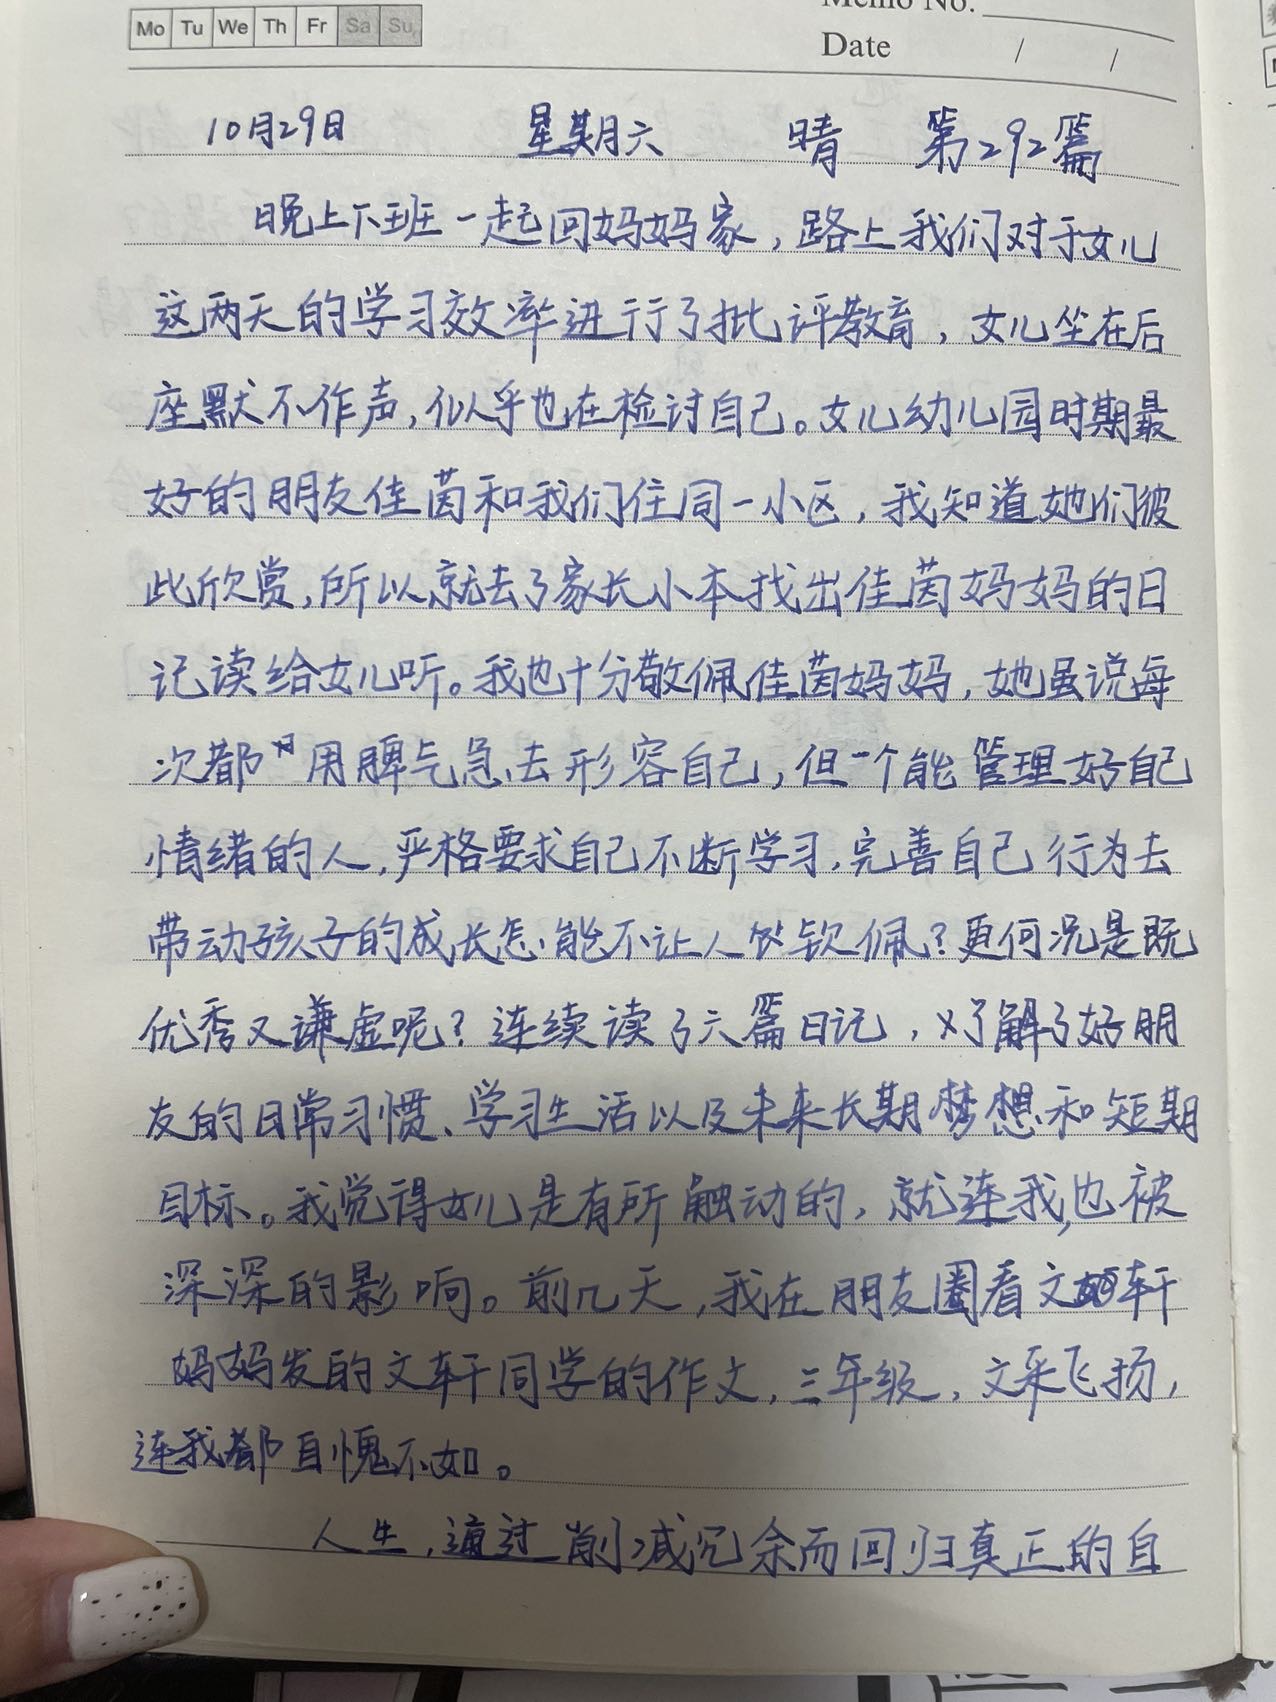 Mo Tu We Th Fr Sa Su
Memo No.
Date / /
10月29日 星期六 晴 第292篇
晚上下班一起回妈妈家，路上我们对于女儿
这两天的学习效率进行了批评教育，女儿坐在后
座默不作声，似乎也在检讨自己。女儿幼儿园时期最
好的朋友佳茵和我们住同一小区，我知道她们彼
此欣赏，所以就去了家长小本找出佳茵妈妈的日
记读给女儿听。我也十分敬佩佳茵妈妈，她虽说每
次都用脾气急去形容自己，但一个能管理好自己
情绪的人，严格要求自己不断学习，完善自己行为去
带动孩子的成长怎能不让人钦佩？更何况是既
优秀又谦虚呢？连续读了六篇日记，了解了好朋
友的日常习惯、学习生活以及未来长期梦想和短期
目标。我觉得女儿是有所触动的，就连我也被
深深的影响。前几天，我在朋友圈看文轩
妈妈发的文轩同学的作文，三年级，文采飞扬，
连我都自愧不如。
人生，通过削减冗余而回归真正的自